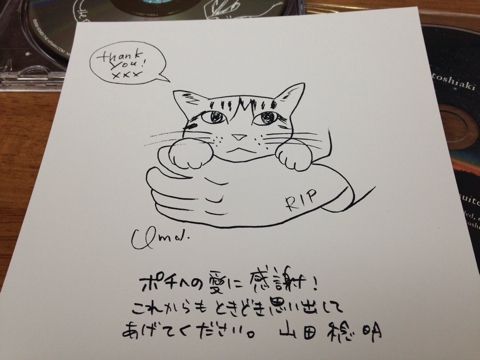 thank
you!
xxx
toshiaki
RIP
ポチへの愛に感謝!
これからもときどき思い出して
あげてください。 山田稔明